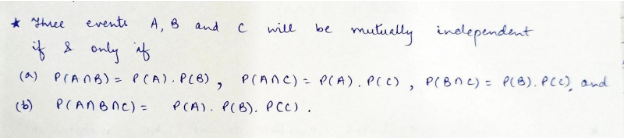 * Three events A, B and C will be mutually independent
if & only if
(a) P(A∩B) = P(A). P(B) , P(A∩C) = P(A). P(C) , P(B∩C) = P(B). P(C), and
(b) P(A∩B∩C) = P(A). P(B). P(C) .